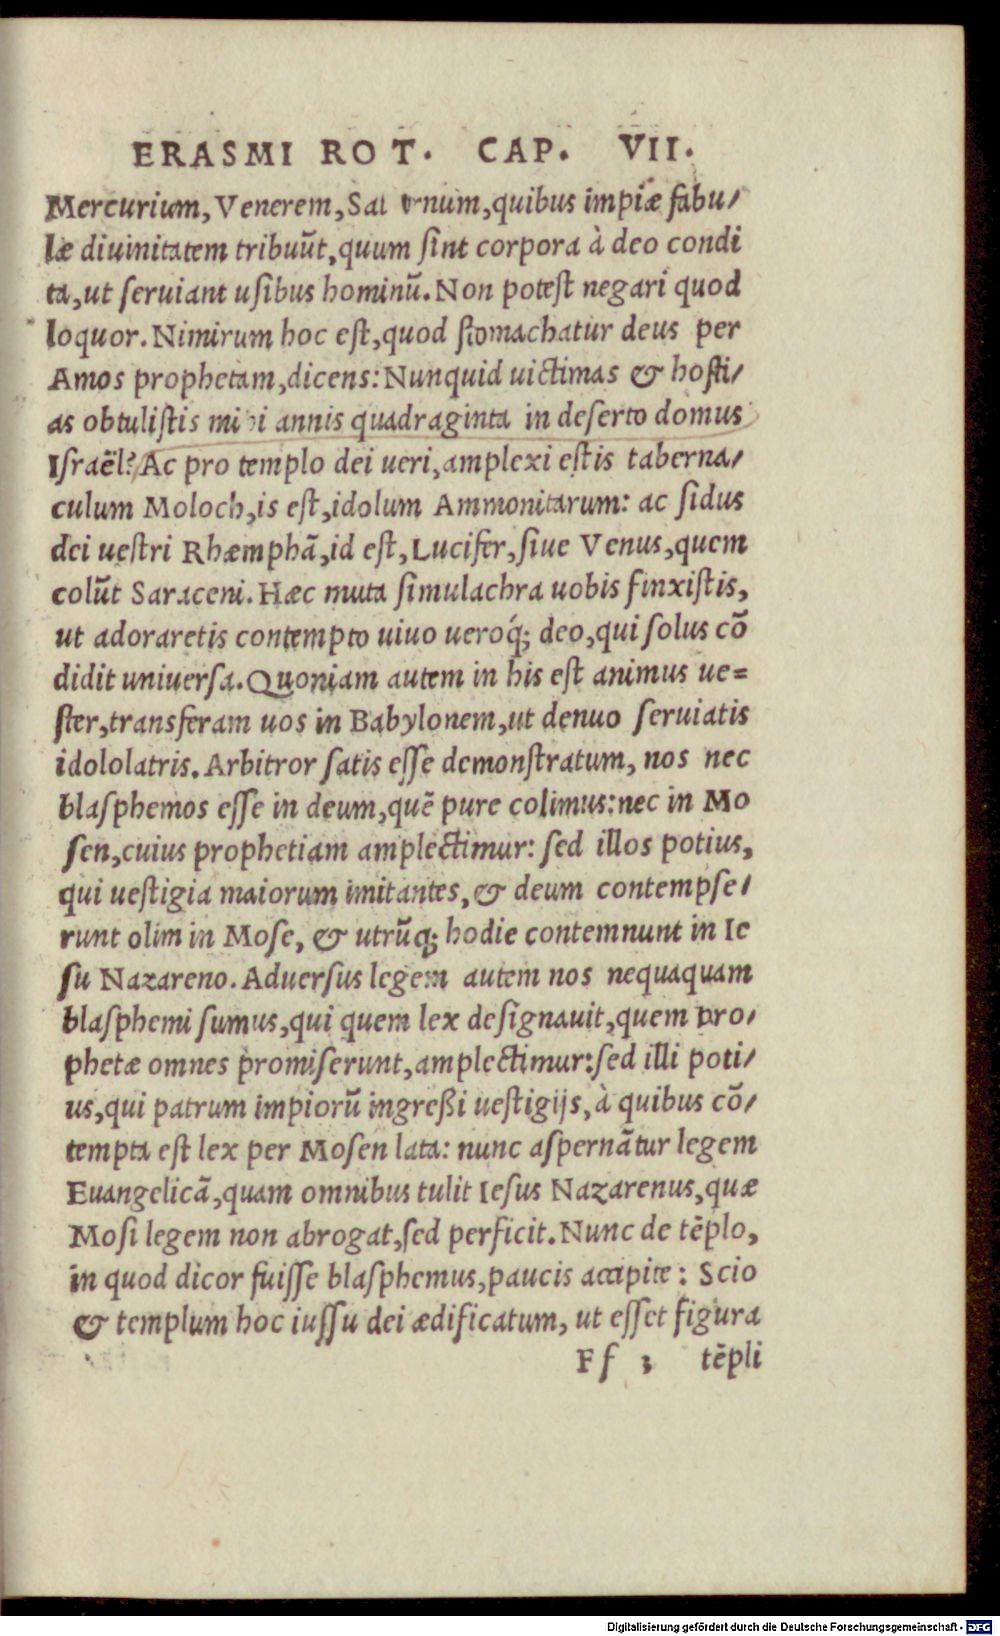 ERASMI ROT. CAP. VII.
Mercurium, Venerem, Saturnum, quibus impiæ fabu/
læ diuinitatem tribuūt, quum ſint corpora à deo condi
ta, ut ſeruiant uſibus hominū. Non poteſt negari quod
loquor. Nimirum hoc eſt, quod ſtomachatur deus per
Amos prophetam, dicens: Nunquid uictimas & hoſti/
as obtuliſtis mihi annis quadraginta in deſerto domus
Iſraēl? Ac pro templo dei ueri, amplexi eſtis taberna/
culum Moloch, is eſt, idolum Ammonitarum: ac ſidus
dei ueſtri Rhæmphā, id eſt, Lucifer, ſiue Venus, quem
colūt Saraceni. Hæc muta ſimulachra uobis finxiſtis,
ut adoraretis contempto uiuo ueroq́; deo, qui ſolus cō
didit uniuerſa. Quoniam autem in his eſt animus ue=
ſter, transferam uos in Babylonem, ut denuo ſeruiatis
idololatris. Arbitror ſatis eſſe demonſtratum, nos nec
blaſphemos eſſe in deum, quē pure colimus: nec in Mo
ſen, cuius prophetiam amplectimur: ſed illos potius,
qui ueſtigia maiorum imitantes, & deum contempſe/
runt olim in Moſe, & utrūq; hodie contemnunt in Ie
ſu Nazareno. Aduerſus legem autem nos nequaquam
blaſphemi ſumus, qui quem lex deſignauit, quem pro/
phetæ omnes promiſerunt, amplectimur: ſed illi poti/
us, qui patrum impiorū ingreßi ueſtigijs, à quibus cō/
tempta eſt lex per Moſen lata: nunc aſpernātur legem
Euangelicā, quam omnibus tulit Ieſus Nazarenus, quæ
Moſi legem non abrogat, ſed perficit. Nunc de tēplo,
in quod dicor fuiſſe blaſphemus, paucis accipite: Scio
& templum hoc iuſſu dei ædificatum, ut eſſet figura
Ff 3 tēpli
Digitalisierung gefördert durch die Deutsche Forschungsgemeinschaft - DFG